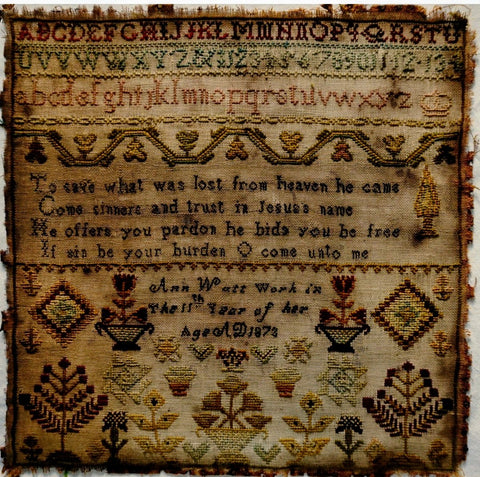 ABCDEFGHIJKLMNOPQRSTU
UVVWWXYZ&
abcdefghijklmnopqrstuvwxyz
To save what was lost from heaven he came
Come sinners and trust in Jesuss name
He offers you pardon he bids you be free
If sin be your burden O come unto me
Ann Watt Work in
The 11th Year of her
Age A D 1873